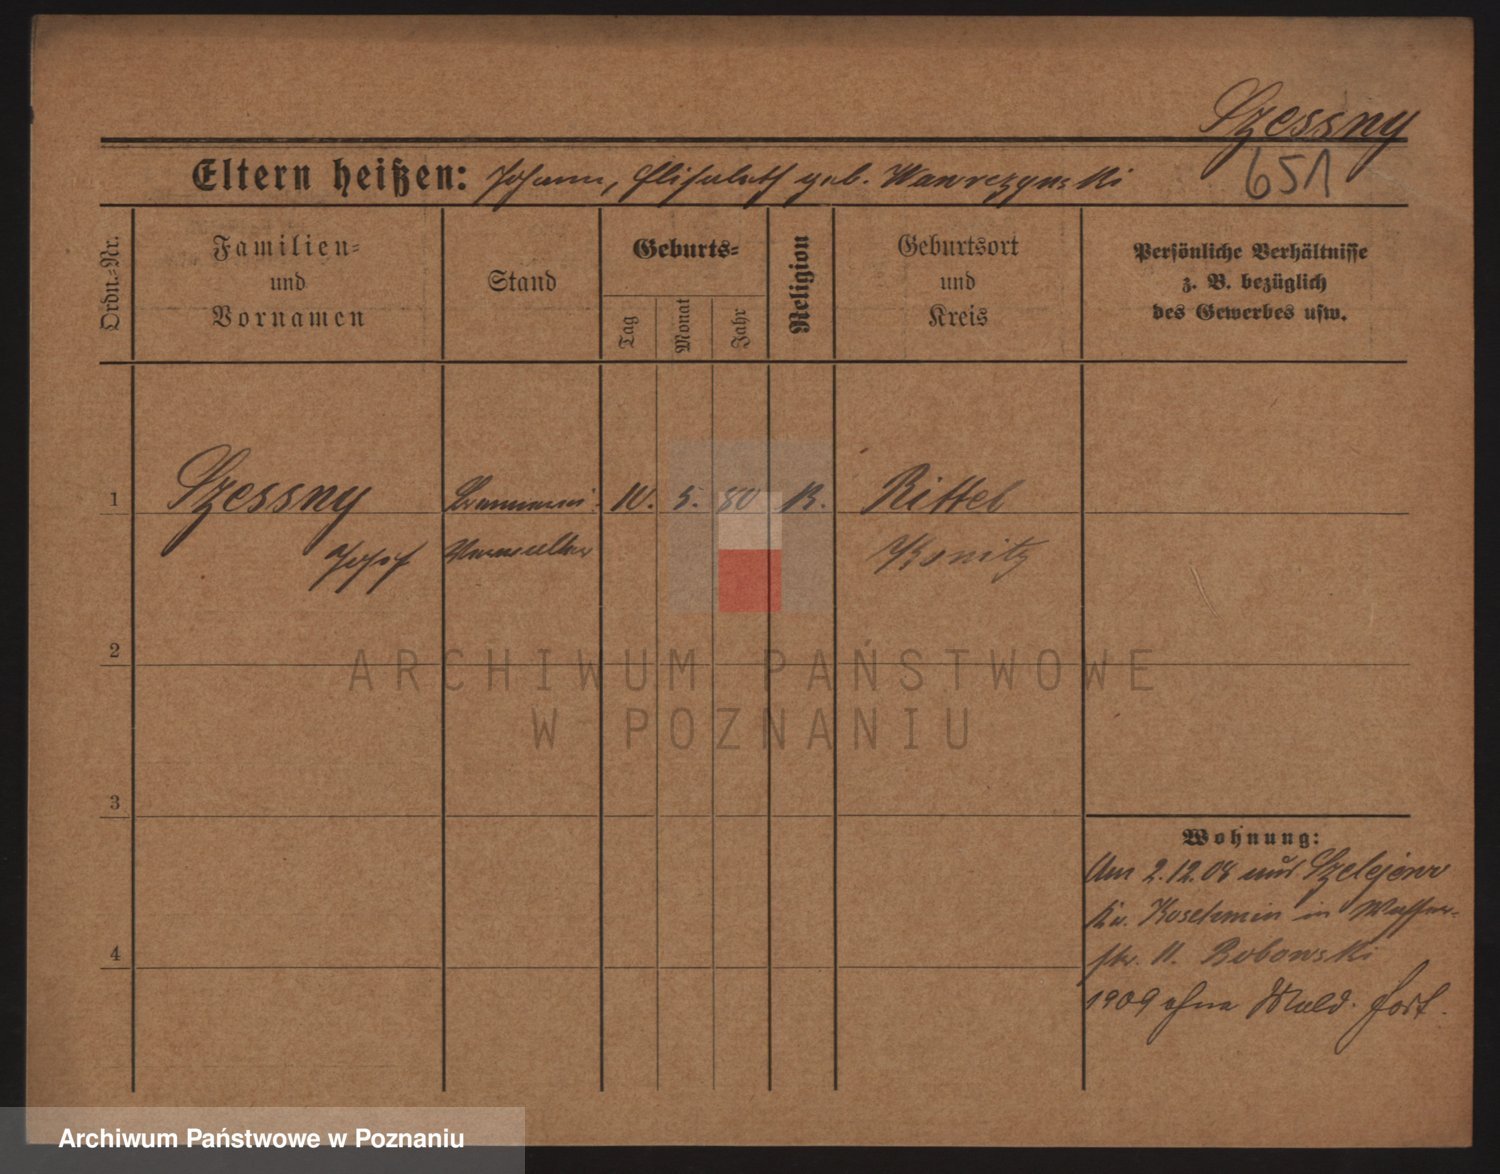 Szessny
651
Eltern heißen: Johann, Elisabeth geb. Wawrezynski
Ordn.-Nr.
Familien-
und
Vornamen
Stand
Geburts-
Tag
Monat
Jahr
Religion
Geburtsort
und
Kreis
Persönliche Verhältnisse
z. B. bezüglich
des Gewerbes usw.
1 Szessny 10. 5. 80 K. Rittel
Josef Verwalter Konitz
2
ARCHIWUM PAŃSTWOWE
W POZNANIU
3
Wohnung:
Am 2.12.08 aus Szelejewo
Kr. Koschmin in Wasser-
str. 11. Bobowski
1909 ohne Meld. fort.
4
Archiwum Państwowe w Poznaniu